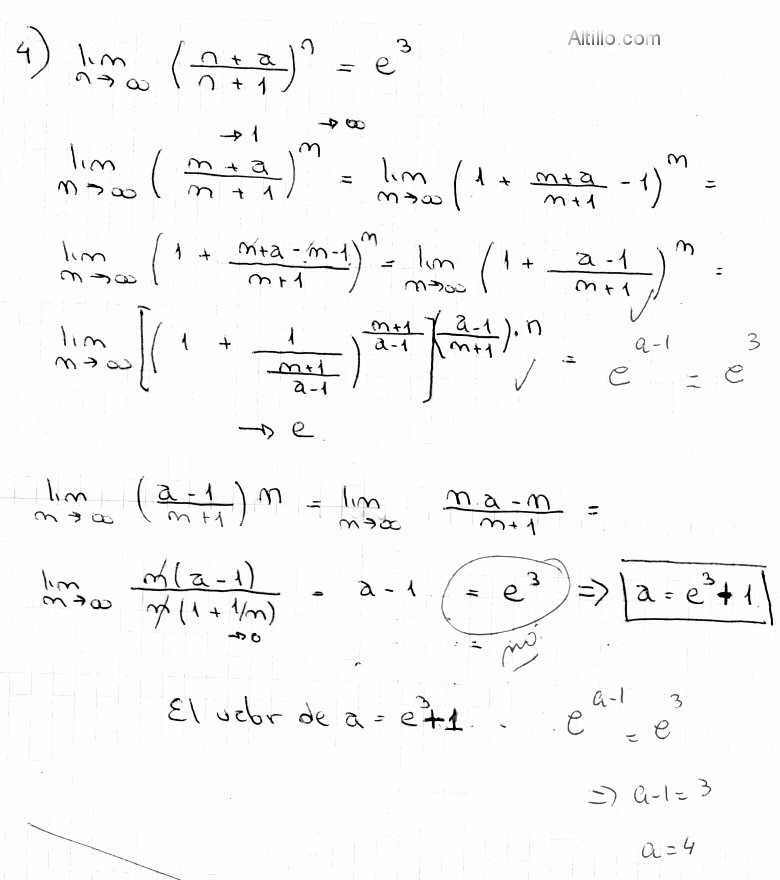 Altillo.com
4) lim n→∞ ((n + a)/(n + 1))^n = e^3
→1 →∞
lim n→∞ ((n + a)/(n + 1))^n = lim n→∞ (1 + (n+a)/(n+1) - 1)^n =
lim n→∞ (1 + (n+a-n-1)/(n+1))^n = lim n→∞ (1 + (a-1)/(n+1))^n = ✓
lim n→∞ [(1 + 1/((n+1)/(a-1)))^((n+1)/(a-1))]^(((a-1)/(n+1)).n) ✓ = e^(a-1) = e^3
→ e
lim n→∞ ((a-1)/(n+1)) n = lim n→∞ (n.a-n)/(n+1) =
lim n→∞ n(a-1)/(n(1+1/n)) = a-1 = e^3 ⇒ a = e^3+1
→0
= no
El valor de a = e^3+1. e^(a-1) = e^3
⇒ a-1=3
a=4